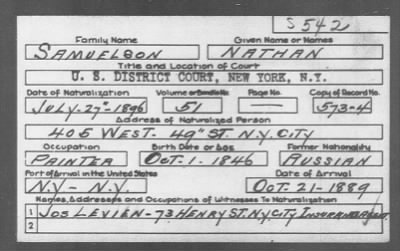 S 542
Family Name Given Name or Names
SAMUELSON NATHAN
Title and Location of Court
U. S. DISTRICT COURT, NEW YORK, N.Y.
Date of Naturalization Volume or Bundle No. Page No. Copy of Record No.
JULY-27"-1896 51 — 573-4
Address of Naturalized Person
405 WEST. 49" ST. N.Y. CITY
Occupation Birth Date or Age Former Nationality
PAINTER OCT. 1. 1846 RUSSIAN
Port of Arrival in the United States Date of Arrival
N.Y.- N.Y. OCT. 21-1889
Names, Addresses and Occupations of Witnesses To Naturalization
1 JOS LEVIEN-73 HENRY ST. N.Y. CITY INSURANCE AGENT.
2